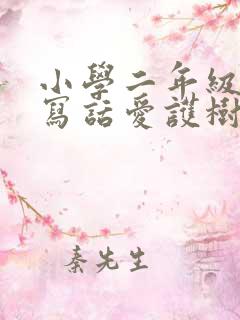 小學二年級
寫話愛護樹
秦先生